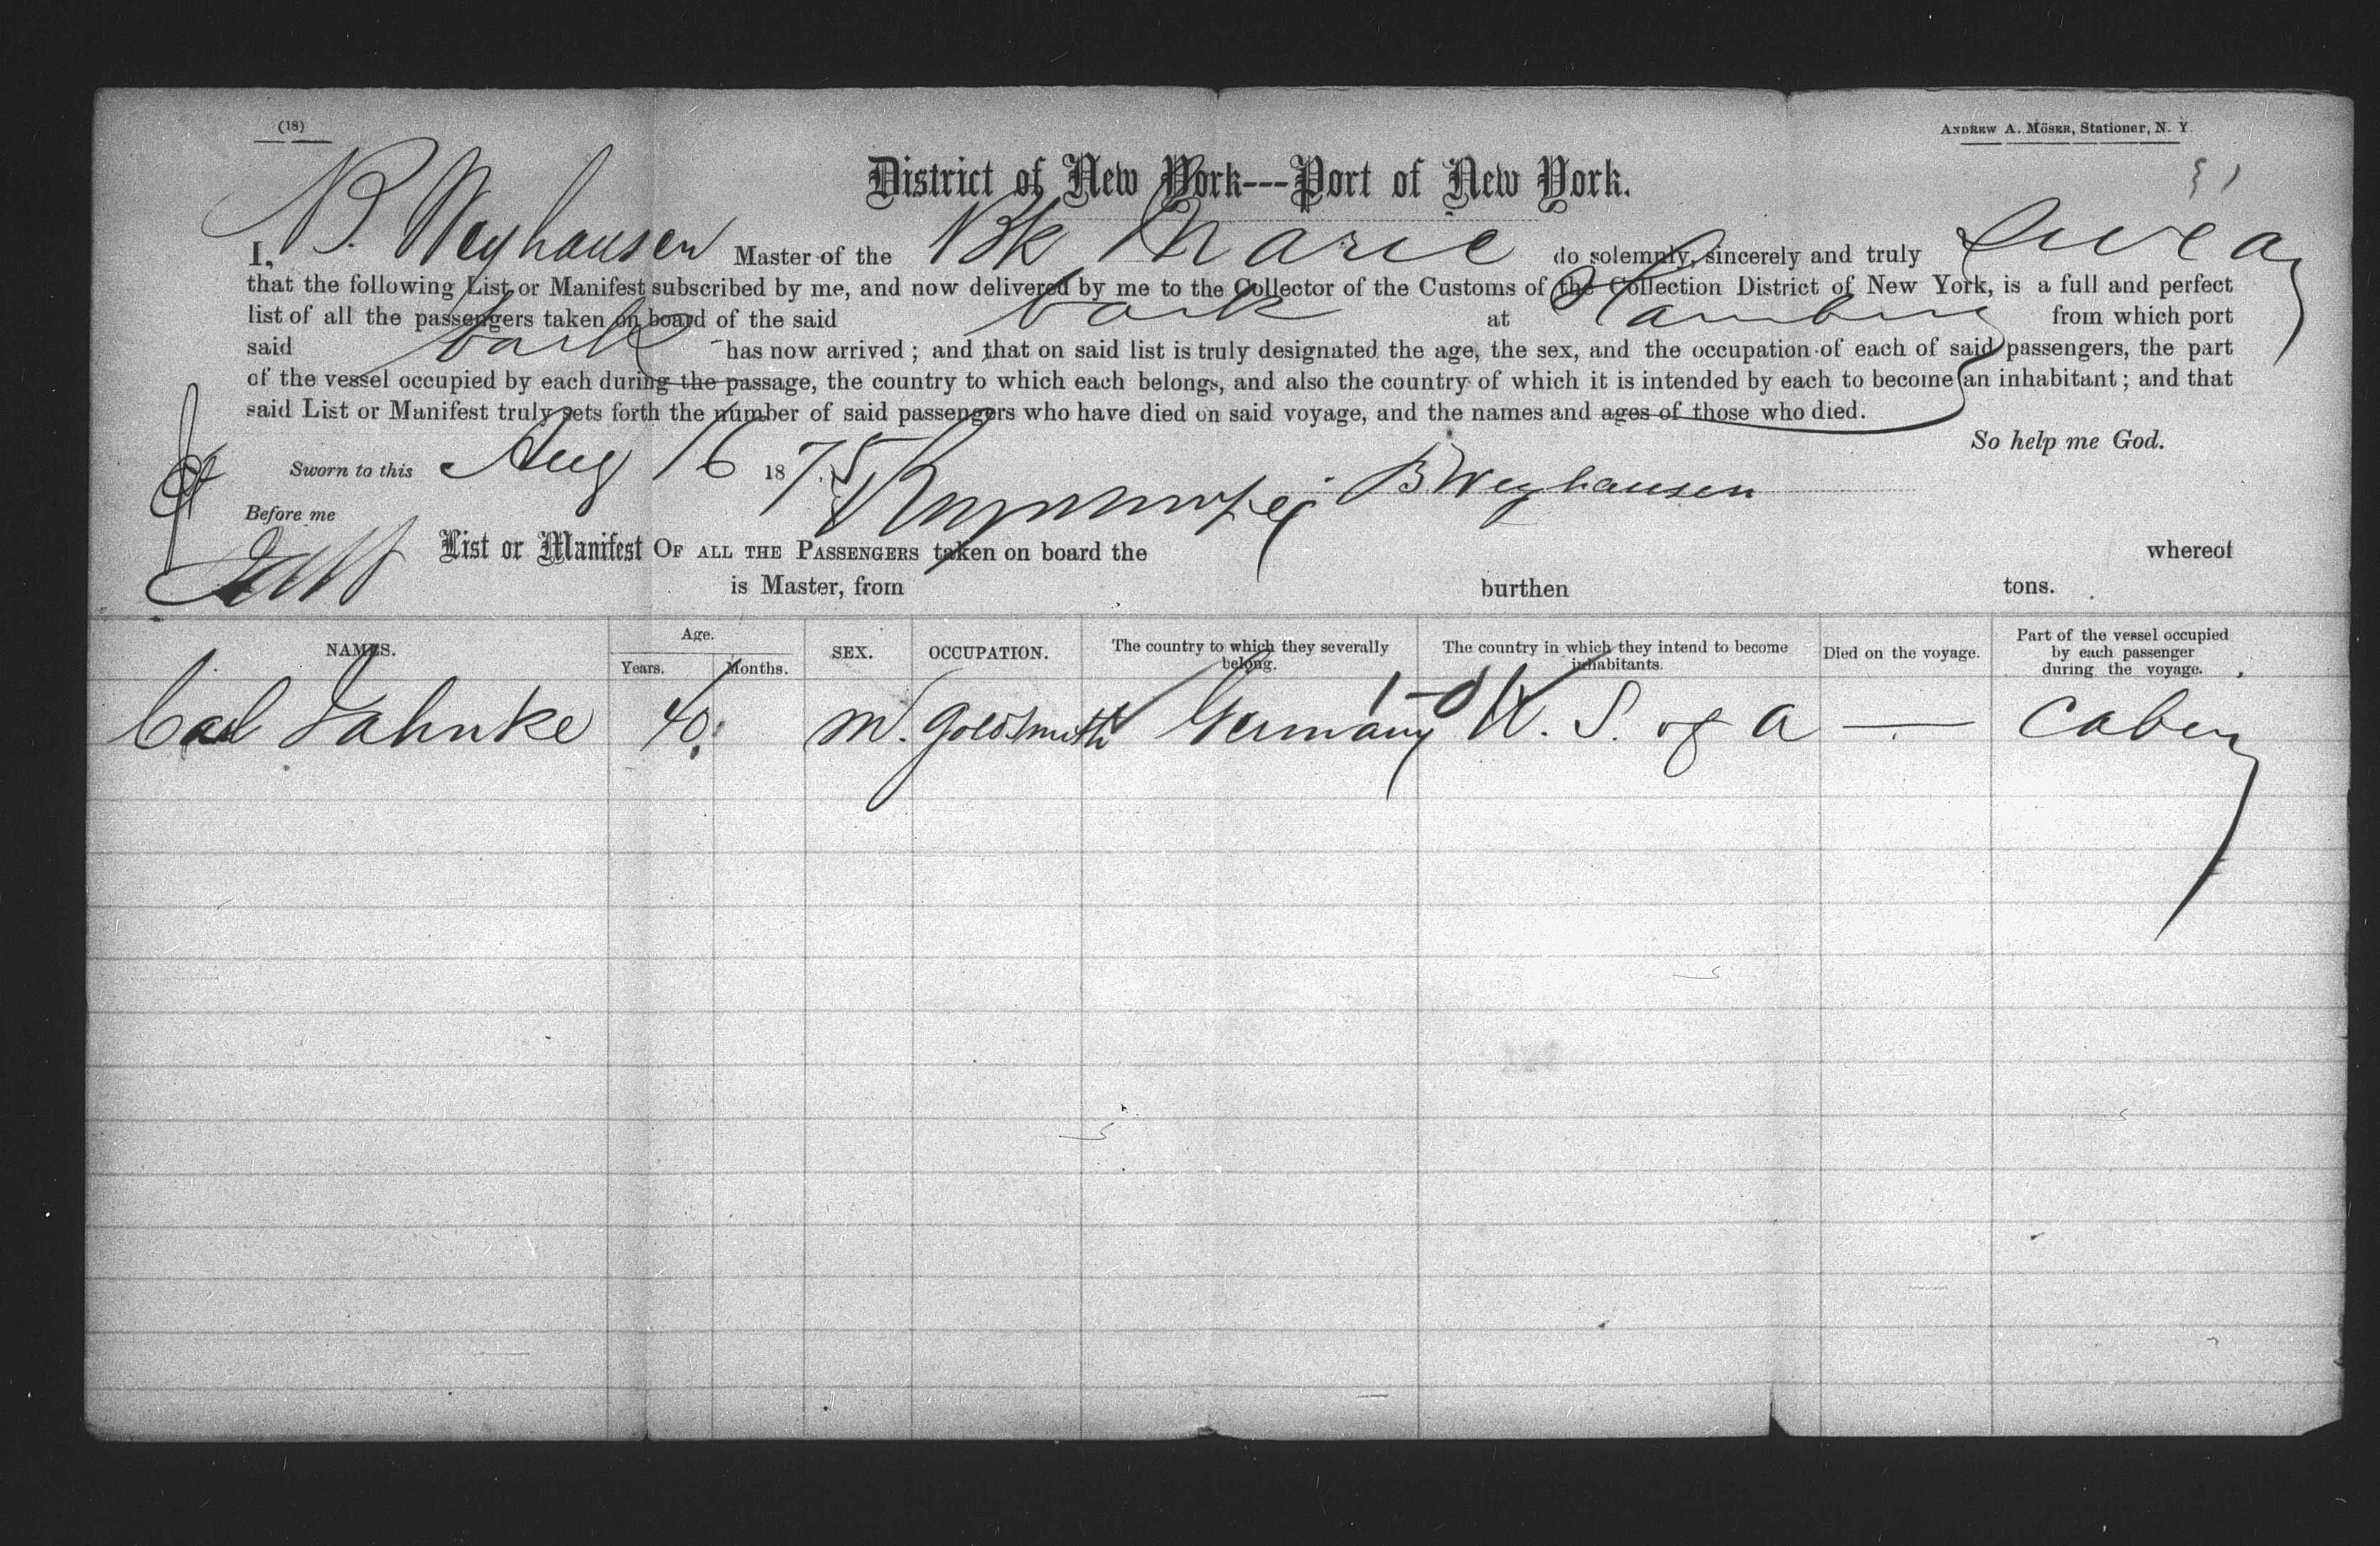 (18)
ANDREW A. MÖSER, Stationer, N. Y.
District of New York---Port of New York.
I, B. Weyhausen Master of the Bk Marie do solemnly, sincerely and truly swear
that the following List or Manifest subscribed by me, and now delivered by me to the Collector of the Customs of the Collection District of New York, is a full and perfect
list of all the passengers taken on board of the said bark at Hamburg from which port
said bark has now arrived; and that on said list is truly designated the age, the sex, and the occupation of each of said passengers, the part
of the vessel occupied by each during the passage, the country to which each belongs, and also the country of which it is intended by each to become an inhabitant; and that
said List or Manifest truly sets forth the number of said passengers who have died on said voyage, and the names and ages of those who died.
So help me God.
Sworn to this Aug 16 1875 B Weyhausen
Before me
List or Manifest OF ALL THE PASSENGERS taken on board the whereof
is Master, from burthen tons.
NAMES. Age. Years. Months. SEX. OCCUPATION. The country to which they severally belong. The country in which they intend to become inhabitants. Died on the voyage. Part of the vessel occupied by each passenger during the voyage.
Carl Jahnke 40 M. Goldsmith Germany U. S. of A — Cabin